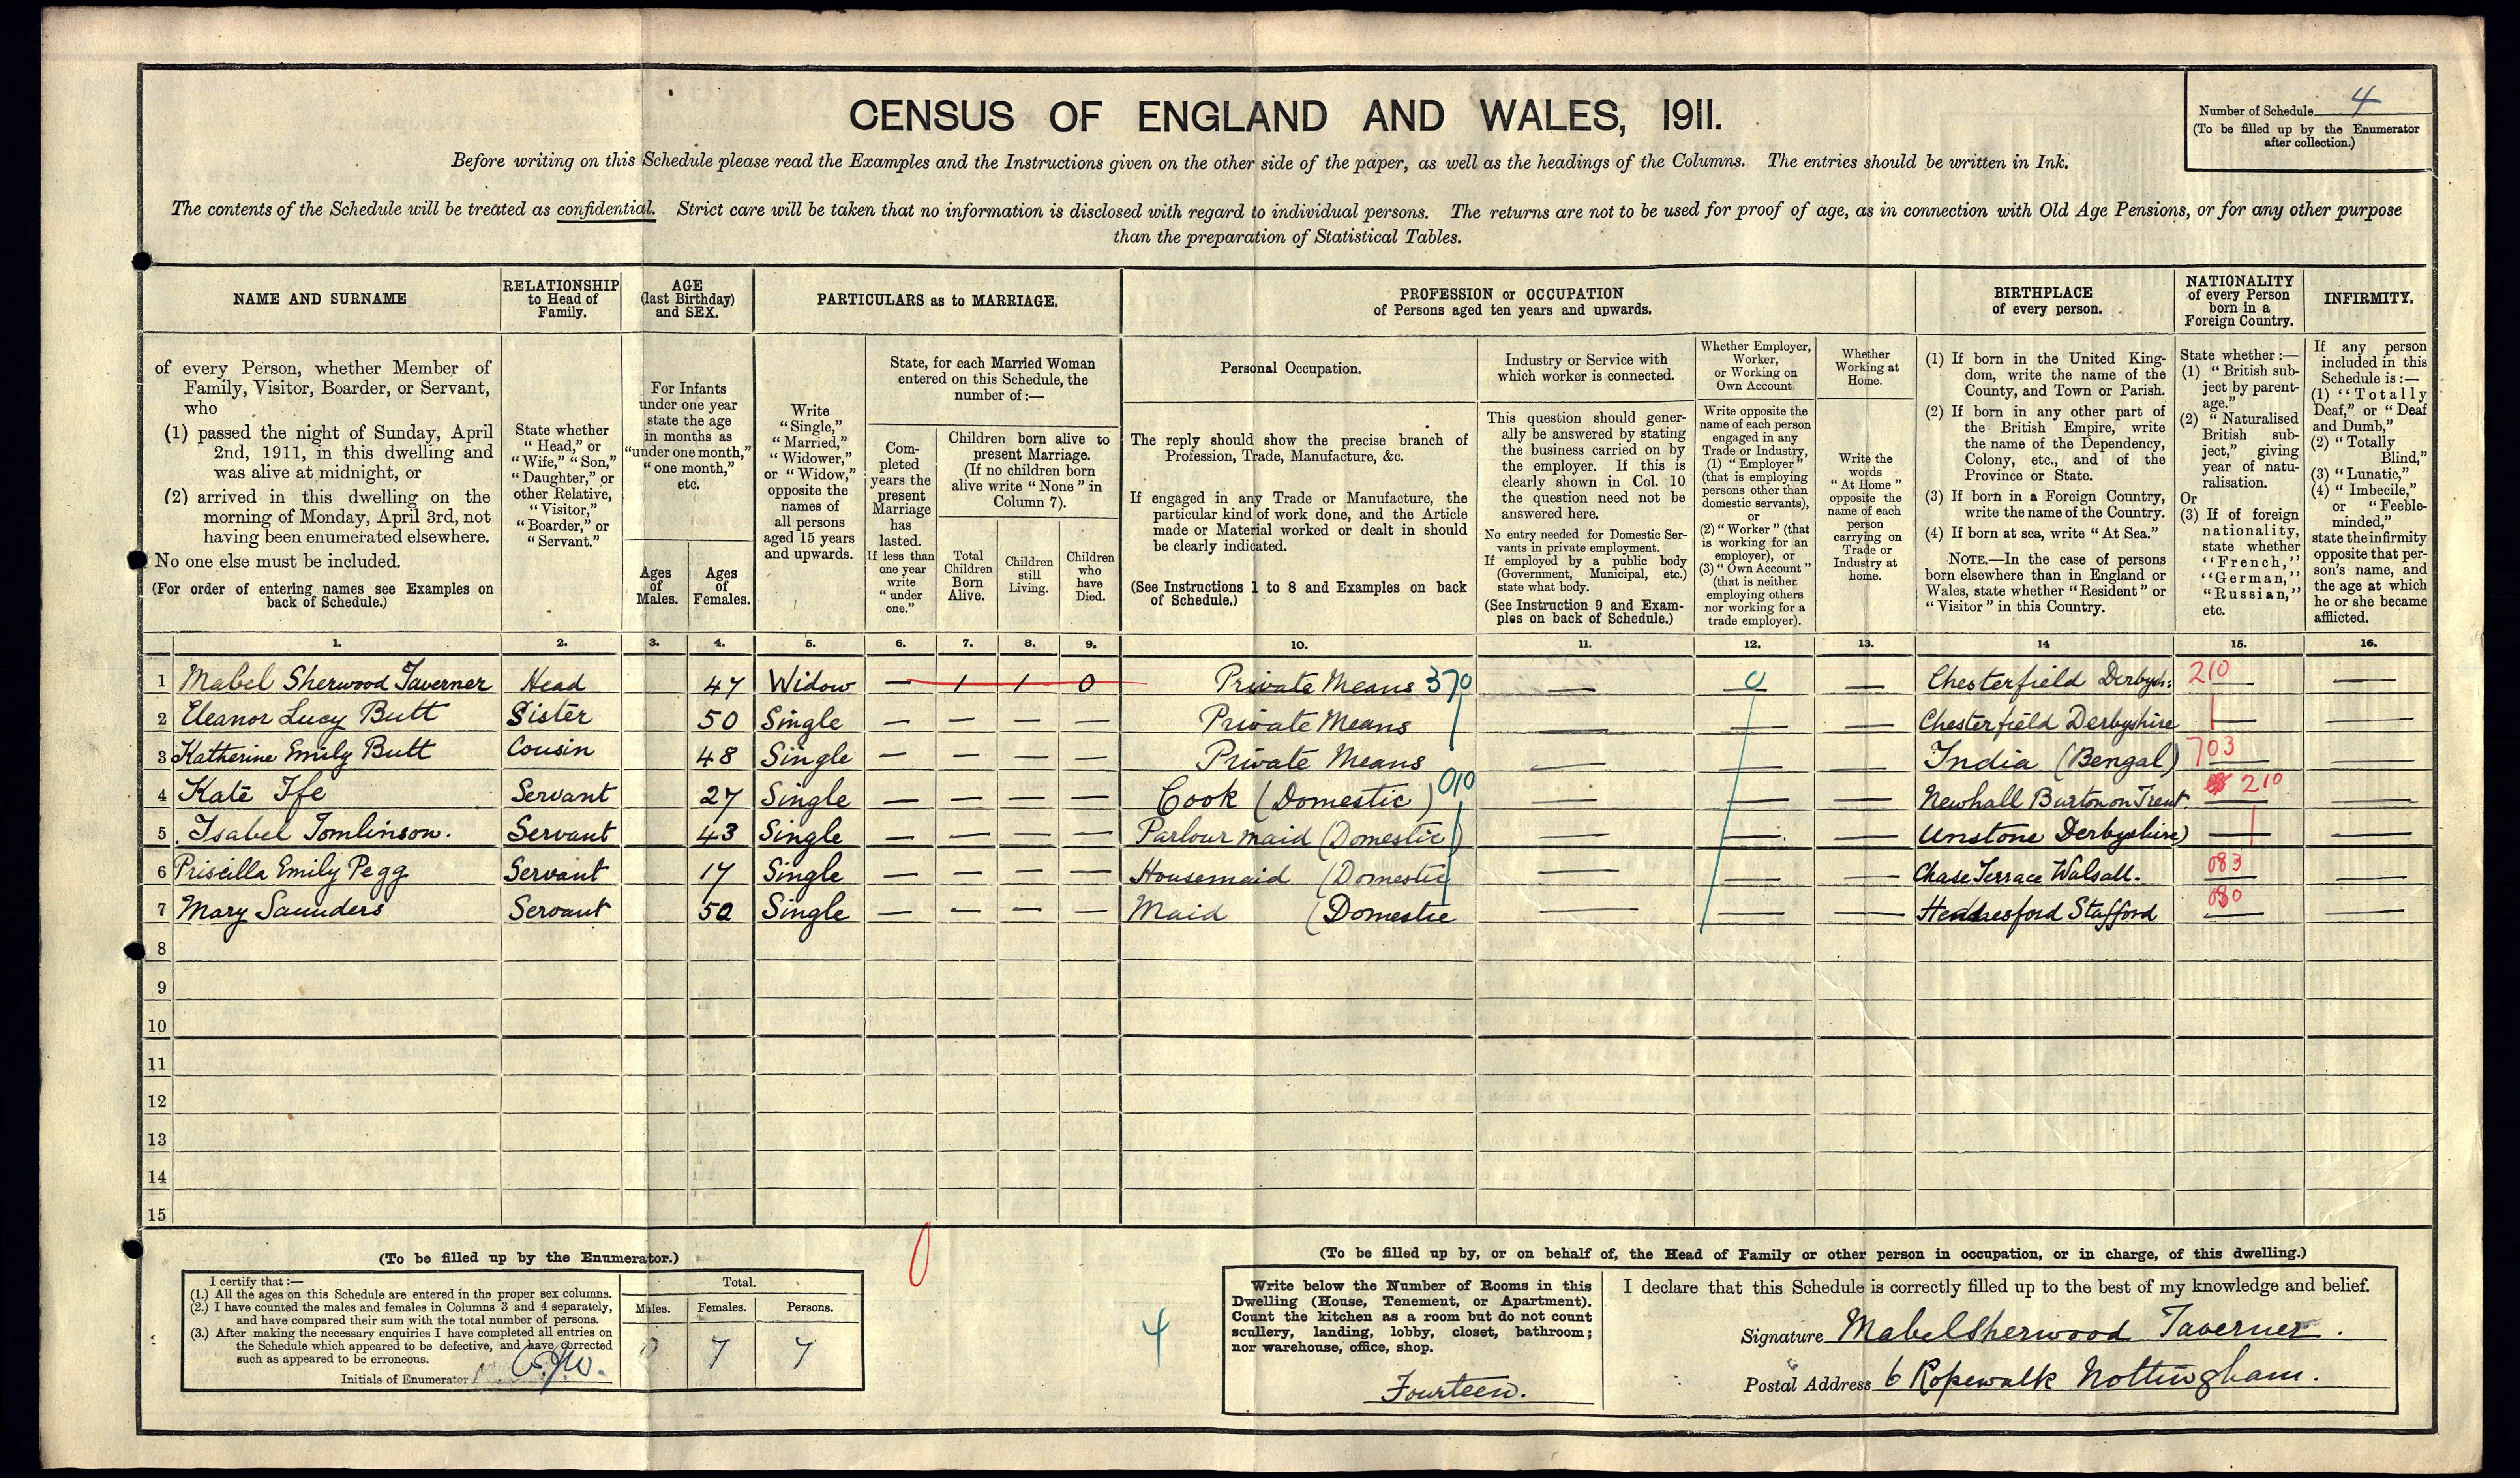 CENSUS OF ENGLAND AND WALES, 1911.
Number of Schedule 4
(To be filled up by the Enumerator
after collection.)
Before writing on this Schedule please read the Examples and the Instructions given on the other side of the paper, as well as the headings of the Columns. The entries should be written in Ink.
The contents of the Schedule will be treated as confidential. Strict care will be taken that no information is disclosed with regard to individual persons. The returns are not to be used for proof of age, as in connection with Old Age Pensions, or for any other purpose
than the preparation of Statistical Tables.
NAME AND SURNAME
of every Person, whether Member of
Family, Visitor, Boarder, or Servant,
who
(1) passed the night of Sunday, April
2nd, 1911, in this dwelling and
was alive at midnight, or
(2) arrived in this dwelling on the
morning of Monday, April 3rd, not
having been enumerated elsewhere.
No one else must be included.
(For order of entering names see Examples on
back of Schedule.)
RELATIONSHIP
to Head of
Family.
State whether
"Head," or
"Wife," "Son,"
"Daughter," or
other Relative,
"Visitor,"
"Boarder," or
"Servant."
AGE
(last Birthday)
and SEX.
For Infants
under one year
state the age
in months as
"under one month,"
"one month,"
etc.
Ages
of
Males.
Ages
of
Females.
PARTICULARS as to MARRIAGE.
Write
"Single,"
"Married,"
"Widower,"
or "Widow,"
opposite the
names of
all persons
aged 15 years
and upwards.
State, for each Married Woman
entered on this Schedule, the
number of:—
Com-
pleted
years the
present
Marriage
has
lasted.
If less than
one year
write
"under
one."
Children born alive to
present Marriage.
(If no children born
alive write "None" in
Column 7).
Total
Children
Born
Alive.
Children
still
Living.
Children
who
have
Died.
PROFESSION or OCCUPATION
of Persons aged ten years and upwards.
Personal Occupation.
The reply should show the precise branch of
Profession, Trade, Manufacture, &c.
If engaged in any Trade or Manufacture, the
particular kind of work done, and the Article
made or Material worked or dealt in should
be clearly indicated.
(See Instructions 1 to 8 and Examples on back
of Schedule.)
Industry or Service with
which worker is connected.
This question should gener-
ally be answered by stating
the business carried on by
the employer. If this is
clearly shown in Col. 10
the question need not be
answered here.
No entry needed for Domestic Ser-
vants in private employment.
If employed by a public body
(Government, Municipal, etc.)
state what body.
(See Instruction 9 and Exam-
ples on back of Schedule.)
Whether Employer,
Worker,
or Working on
Own Account
Write opposite the
name of each person
engaged in any
Trade or Industry,
(1) "Employer"
(that is employing
persons other than
domestic servants),
or
(2) "Worker" (that
is working for an
employer), or
(3) "Own Account"
(that is neither
employing others
nor working for a
trade employer).
Whether
Working at
Home.
Write the
words
"At Home"
opposite the
name of each
person
carrying on
Trade or
Industry at
home.
BIRTHPLACE
of every person.
(1) If born in the United King-
dom, write the name of the
County, and Town or Parish.
(2) If born in any other part of
the British Empire, write
the name of the Dependency,
Colony, etc., and of the
Province or State.
(3) If born in a Foreign Country,
write the name of the Country.
(4) If born at sea, write "At Sea."
NOTE.—In the case of persons
born elsewhere than in England or
Wales, state whether "Resident" or
"Visitor" in this Country.
NATIONALITY
of every Person
born in a
Foreign Country.
State whether:—
(1) "British sub-
ject by parent-
age."
(2) "Naturalised
British sub-
ject," giving
year of natu-
ralisation.
Or
(3) If of foreign
nationality,
state whether
"French,"
"German,"
"Russian,"
etc.
INFIRMITY.
If any person
included in this
Schedule is:—
(1) "Totally
Deaf," or "Deaf
and Dumb,"
(2) "Totally
Blind,"
(3) "Lunatic,"
(4) "Imbecile,"
or "Feeble-
minded,"
state the infirmity
opposite that per-
son's name, and
the age at which
he or she became
afflicted.
1. 2. 3. 4. 5. 6. 7. 8. 9. 10. 11. 12. 13. 14 15. 16.
1 Mabel Sherwood Taverner Head 47 Widow — 1 1 0 Private Means 370 — 0 — Chesterfield Derbysh: 210 —
2 Eleanor Lucy Butt Sister 50 Single — — — — Private Means — — — Chesterfield Derbyshire — —
3 Katherine Emily Butt Cousin 48 Single — — — — Private Means — — — India (Bengal) 703 —
4 Kate Ife Servant 27 Single — — — — Cook (Domestic) 010 — — — Newhall Burton on Trent. 210 —
5 Isabel Tomlinson. Servant 43 Single — — — — Parlourmaid (Domestic) — — — Unstone Derbyshire) — —
6 Priscilla Emily Pegg Servant 17 Single — — — — Housemaid (Domestic — — — Chase Terrace Walsall. 083 —
7 Mary Saunders Servant 50 Single — — — — Maid (Domestic — — — Hednesford Stafford 080 —
8
9
10
11
12
13
14
15
(To be filled up by the Enumerator.)
I certify that:—
(1.) All the ages on this Schedule are entered in the proper sex columns.
(2.) I have counted the males and females in Columns 3 and 4 separately,
and have compared their sum with the total number of persons.
(3.) After making the necessary enquiries I have completed all entries on
the Schedule which appeared to be defective, and have corrected
such as appeared to be erroneous.
Initials of Enumerator
Total.
Males. Females. Persons.
7 7
0
4
(To be filled up by, or on behalf of, the Head of Family or other person in occupation, or in charge, of this dwelling.)
Write below the Number of Rooms in this
Dwelling (House, Tenement, or Apartment).
Count the kitchen as a room but do not count
scullery, landing, lobby, closet, bathroom;
nor warehouse, office, shop.
Fourteen.
I declare that this Schedule is correctly filled up to the best of my knowledge and belief.
Signature Mabel Sherwood Taverner.
Postal Address 6 Ropewalk Nottingham.